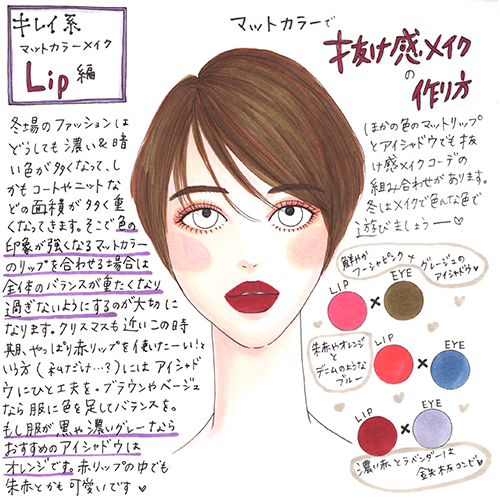 キレイ系
マットカラーメイク
Lip編
マットカラーで
抜け感メイク
の
作り方
冬場のファッションは
どうしても濃い&暗
い色が多くなって、し
かもコートやニットな
どの面積が多く重
くなってきます。そこで色の
印象が強くなるマットカラー
のリップを合わせる場合は
全体のバランスが重たくなり
過ぎないようにするのが大切に
なります。クリスマスも近いこの時
期、やっぱり赤リップを使いたーい!と
いう方(私だけ…?)にはアイシャド
ウにひと工夫を。ブラウンやベージュ
なら服に色を足してバランスを。
もし服が黒や濃いグレーなら
おすすめのアイシャドウは
オレンジです。赤リップの中でも
朱赤とかも可愛いです
ほかの色のマットリップ
とアイシャドウでも抜
け感メイクコーデの
組み合わせがあります。
冬はメイクで色んな色で
遊びましょうー
鮮やか
フーシャピンク+グレージュの
アイシャドウ
LIP × EYE
朱赤やオレンジ
と
デニムのような
ブルー
LIP × EYE
LIP × EYE
濃い赤とラベンダーは
鉄板コンビ